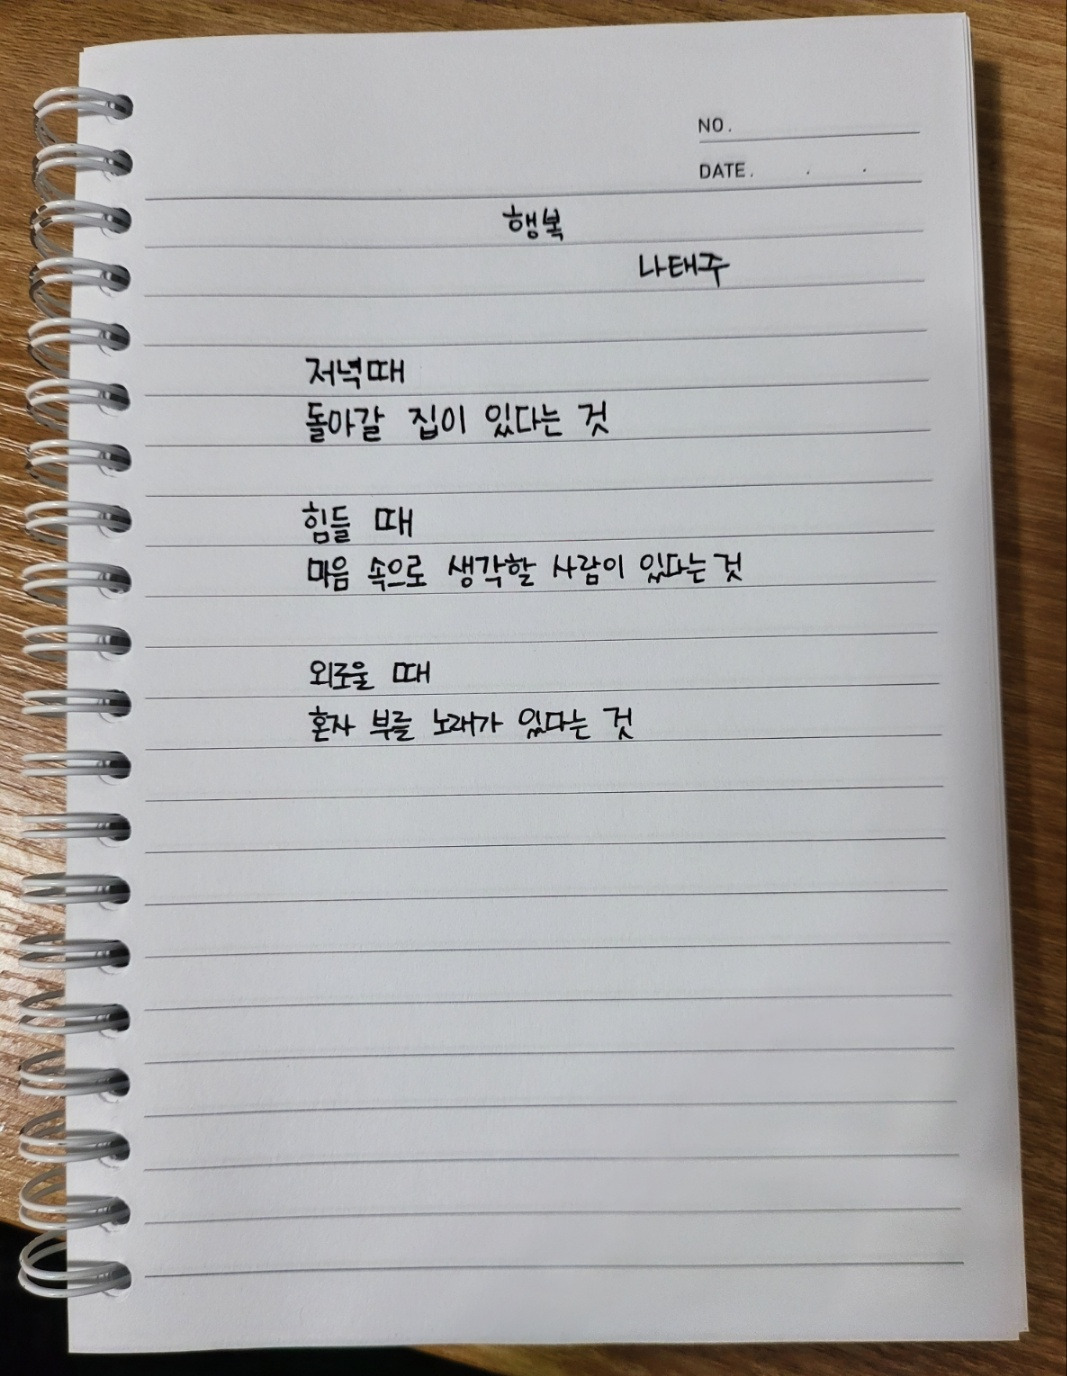 NO.
DATE. . .
행복
나태주
저녁때
돌아갈 집이 있다는 것
힘들 때
마음 속으로 생각할 사람이 있다는 것
외로울 때
혼자 부를 노래가 있다는 것